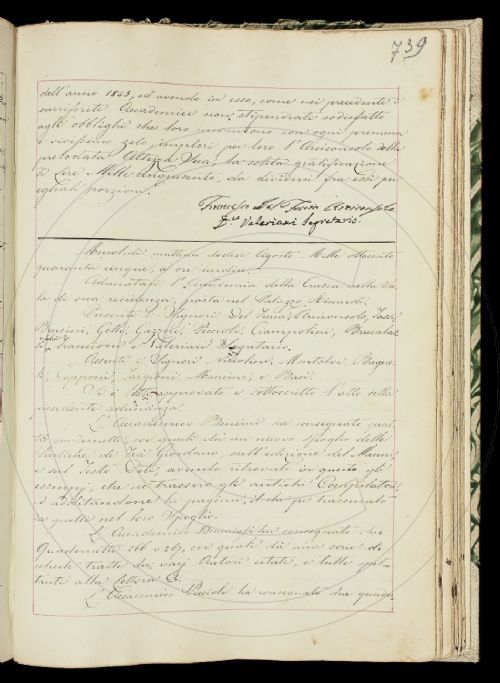 739
dell'anno 1843, ed avendo in esso, come nei precedenti i
surriferiti Accademici non stipendiati sodisfatto
agli obblighi che loro con ogni premura
e vivissimo zelo per loro l'Arciconsolo dalla
prelodata Altezza Sua, la solita gratificazione
di Lire Mille cinquecento, da dividersi fra essi per
eguali porzioni.
Francesco Del Furia Arciconsolo
D. Valeriani Segretario.
mattina dodici Agosto Mille ottocento
quaranta cinque, a ore undici.
Adunatasi l'Accademia della Crusca nella Sa-
la di sua residenza, posta nel Palazzo Riccardi.
Presenti i Signori Del Furia, Arciconsolo,
Bencini, Gelli, Gazzeri, Piccioli, Ciampolini, Brucalas-
si, Franceschi e Valeriani Segretario.
Assenti i Signori Niccolini, Montalvi, Bagno-
li, Capponi, Targioni, Mancini, e Basi.
Si è letto, approvato e sottoscritto l'atto della
precedente adunanza.
L'Accademico Bencini ha consegnato quat-
tro quadernetti, coi quali dà un nuovo spoglio delle
Prediche di Fra Giordano, sull'edizione del Manni,
e sul Testo Riti, avendo ritrovato in questo gli
esempj, che ne trassero gli antichi Compilatori,
ed additandone la pagina, il che fu trascurato
da quelli nel loro Spoglio.
L'Accademico Brucalassi ha consegnato due
Quadernetti 266 e 267, coi quali dà una serie di
schede tratte da varj Autori citati, e tutte spet-
tanti alla lettera C.
L'Accademico Piccioli ha consegnato due quader-